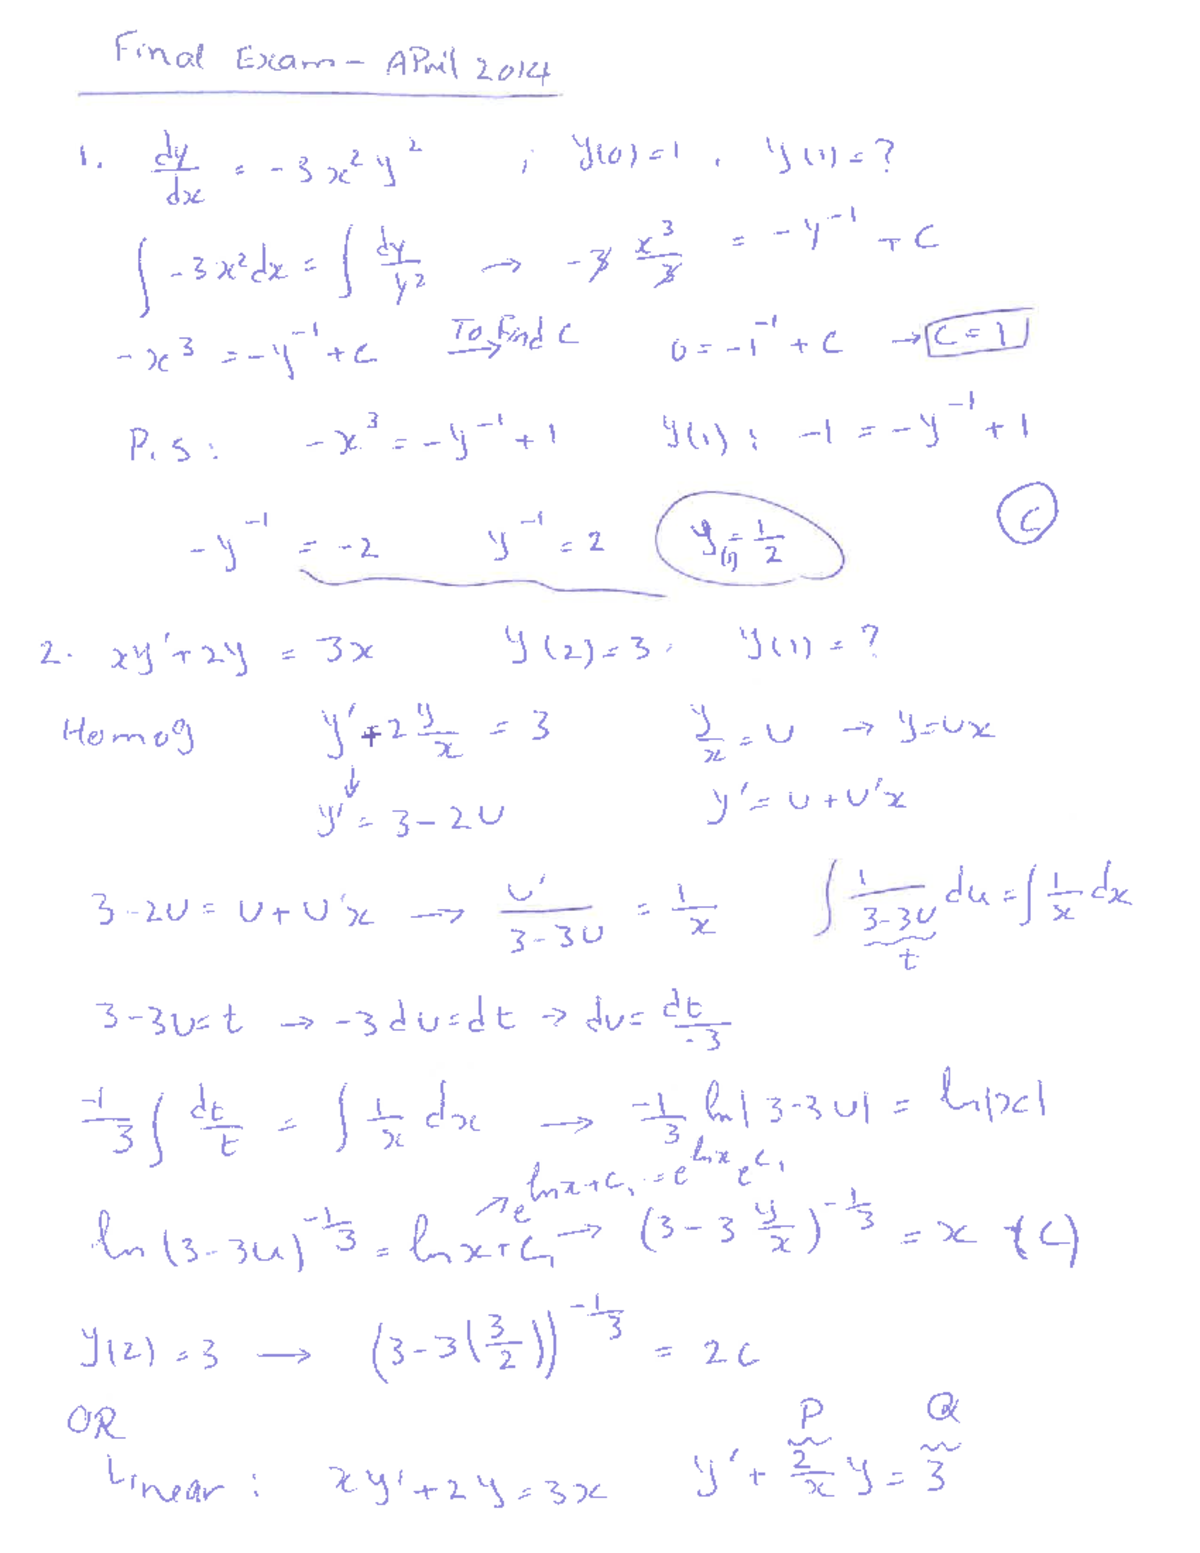 Final Exam - April 2014
1. dy/dx = -3x² y² ; y(0)=1 , y(1)=?
∫ -3x²dx = ∫ dy/y² → -3 x³/3 = -y⁻¹ + C
-x³ = -y⁻¹ + C To Find C → 0 = -1⁻¹ + C → C = 1
P.S: -x³ = -y⁻¹ + 1 y(1): -1 = -y⁻¹ + 1
-y⁻¹ = -2 y⁻¹ = 2 y(1) = 1/2 C
2. xy' + 2y = 3x y(2)=3, y(1)=?
Homog y' + 2 y/x = 3 y/x = U → y = Ux
↓
y' = 3 - 2U y' = U + U'x
3 - 2U = U + U'x → U'/(3-3U) = 1/x ∫ 1/(3-3U) du = ∫ 1/x dx
t
3 - 3U = t → -3dU = dt → dU = dt/-3
-1/3 ∫ dt/t = ∫ 1/x dx → -1/3 ln|3-3U| = ln|x|
→ e^(lnx + C₁) = e^(lnx) e^(C₁)
ln(3-3u)^(-1/3) = lnx + C₁ → (3 - 3 y/x)^(-1/3) = x (C)
y(2) = 3 → (3 - 3(3/2))^(-1/3) = 2C
OR
P Q
Linear: xy' + 2y = 3x y' + 2/x y = 3